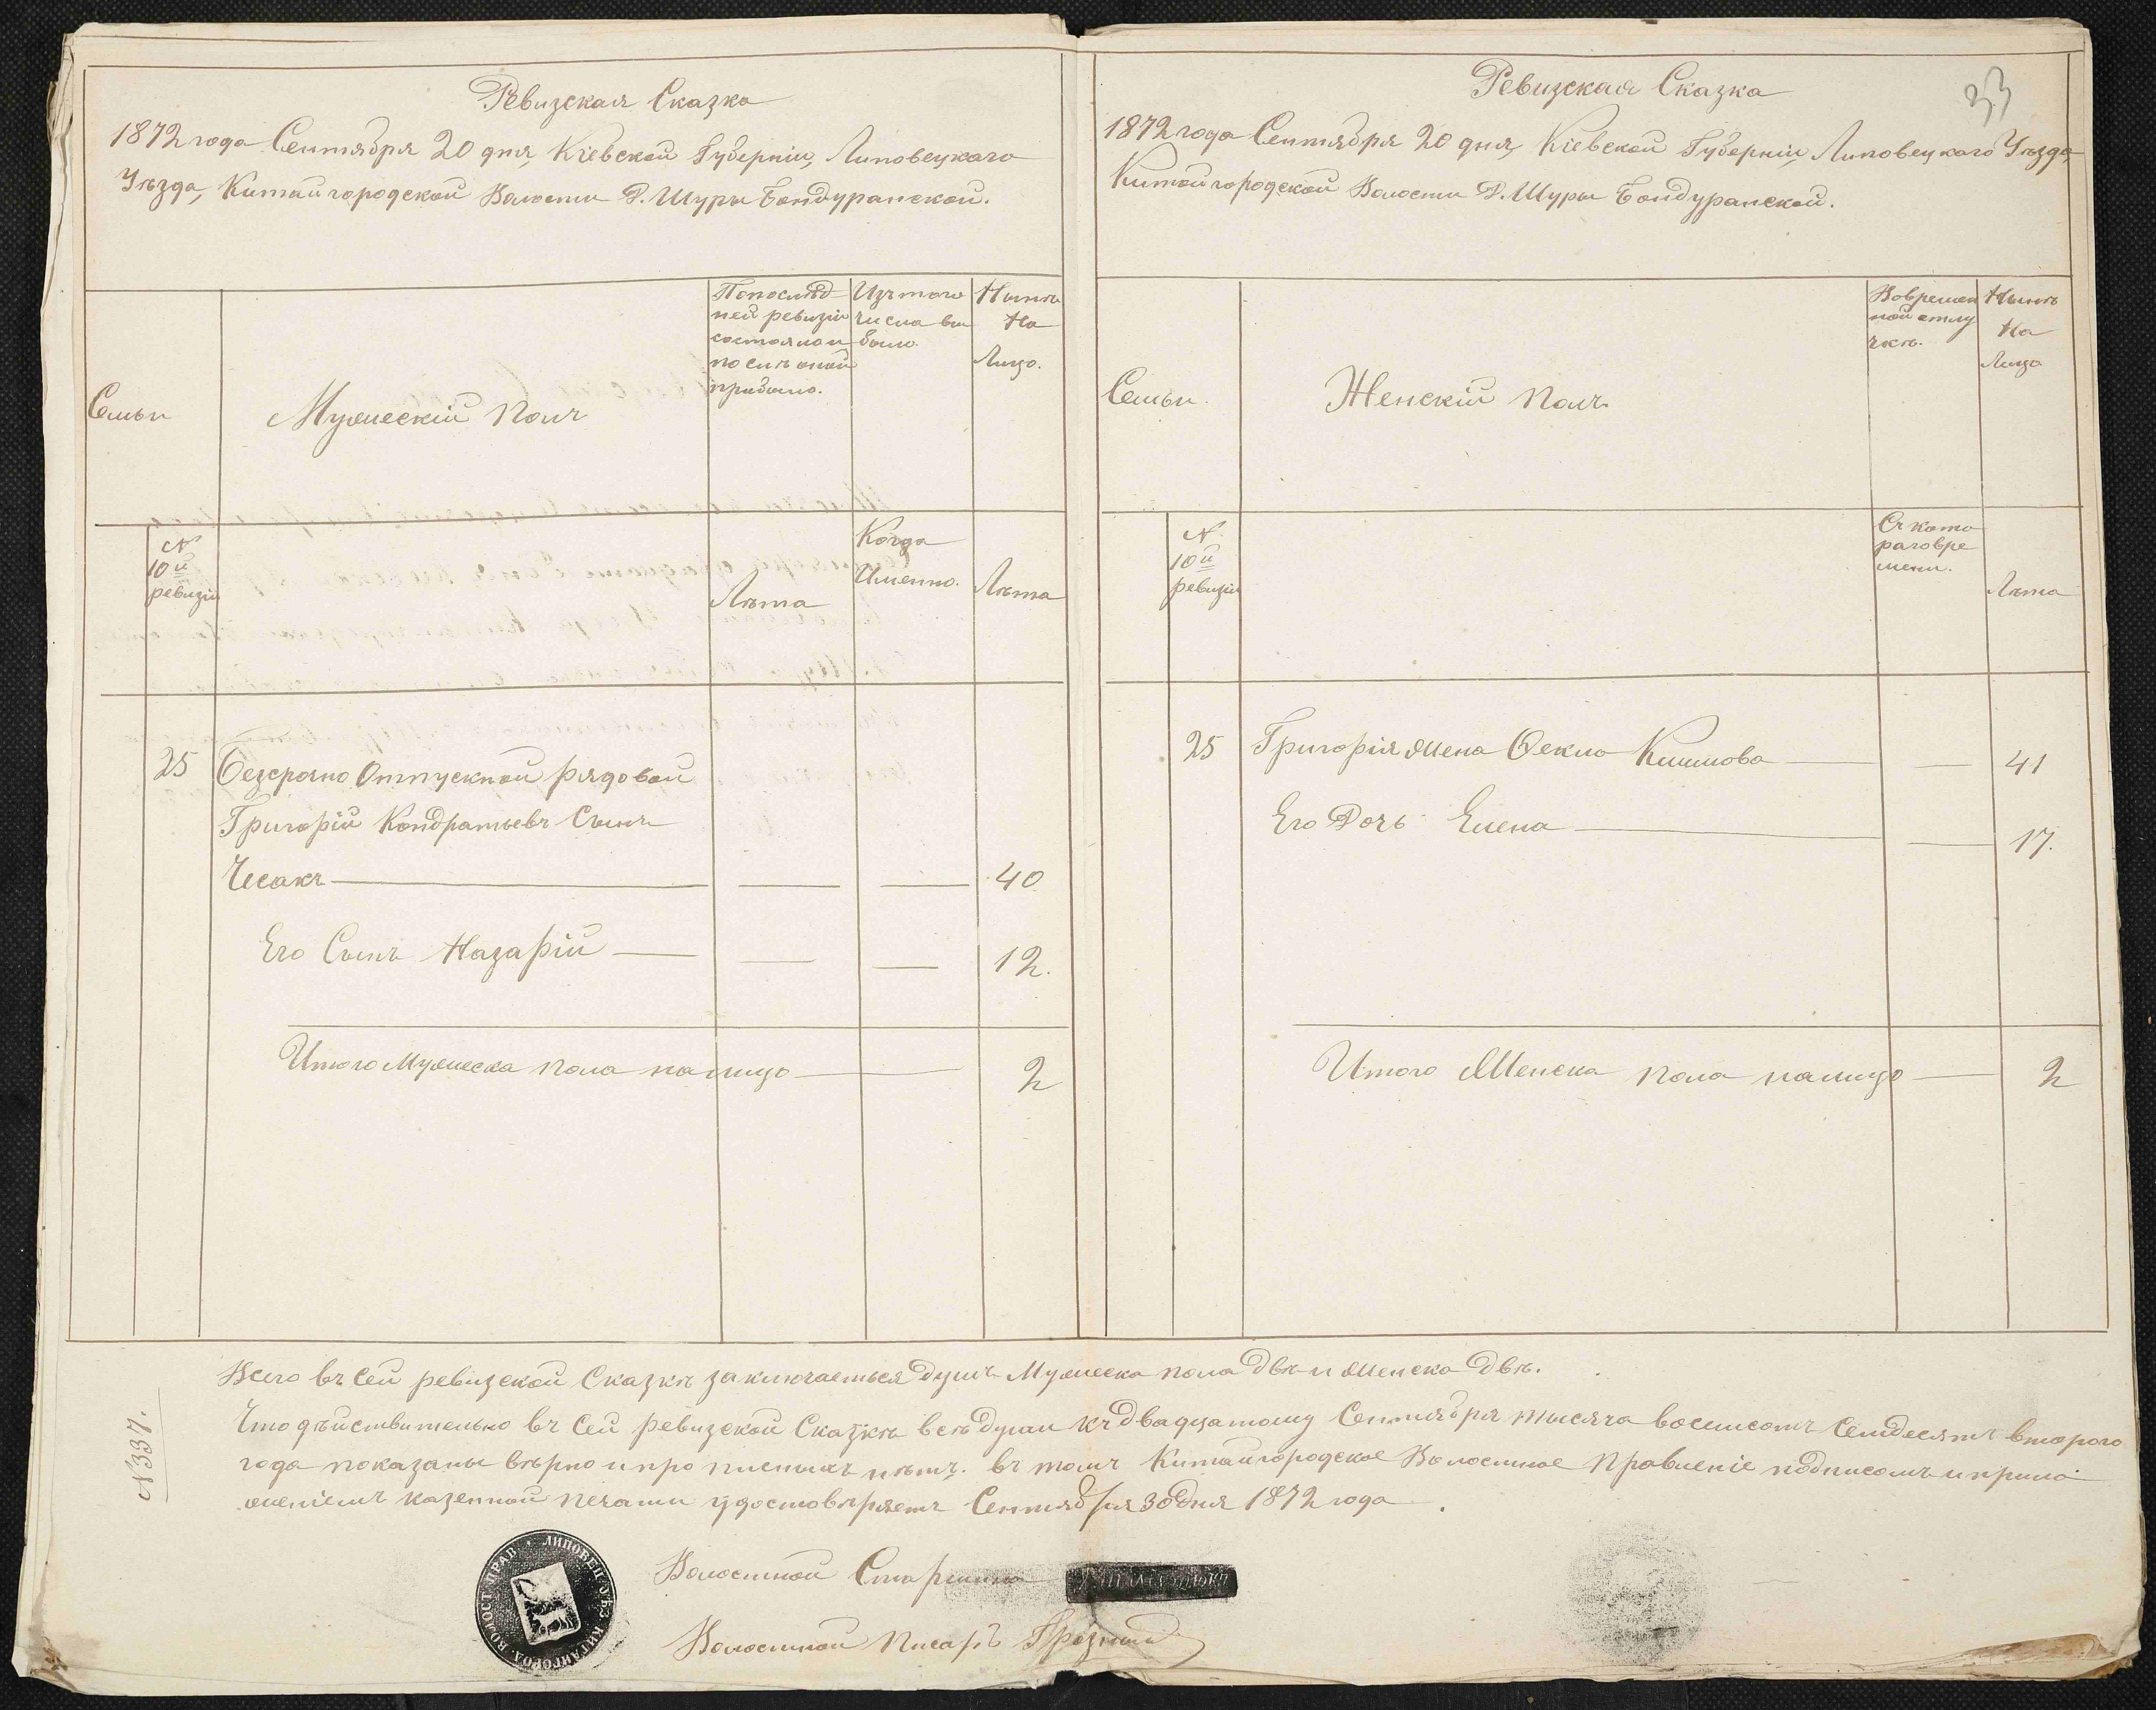 Ревизская Сказка
1872 года Сентября 20 дня Кіевской Губерніи, Липовецкаго
Уѣзда, Китайгородской Волости Д. Шуры Бондуранской.
Семьи
Мужескій полъ
Попослѣд
ней ревизіи
состояло и
послѣ оной
прибыло.
Изъ того
числа вы
было.
Нынѣ
На
Лицо.
№
10й
ревизіи
Лѣта
Когда
Именно.
Лѣта
25 Безсрочно Отпускной рядовой
Григорій Кондратьевъ Сынъ
Чесакъ 40
Его Сынъ Назарій 12.
Итого Мужеска пола налицо 2
Ревизская Сказка
33
1872 года Сентября 20 дня, Кіевской Губерніи Липовецкаго Уѣзда,
Китайгородской Волости Д. Шуры Бондуранской.
Семьи.
Женскій полъ
Вовремен
ной отлу
чкѣ.
Нынѣ
На
Лицо
№
10й
ревизіи
Съ кото
раго вре
мени.
Лѣта
25 Григорія жена Ѳекла Климова 41
Его Дочь Елена 17.
Итого Женска пола налицо 2
Всего въ сей ревизской Сказкѣ заключается душъ Мужеска пола двѣ и женска двѣ.
№337.
Что дѣйствительно въ сей ревизской Сказкѣ всѣ души къ двадцатому Сентября тысяча восемсотъ Семдесятъ второго
года показаны вѣрно и прописныхъ нѣтъ. въ томъ Китайгородское Волостное Правленіе подписомъ и прило
женіемъ казенной печати удостовѣряетъ Сентября 30 дня 1872 года.
Волостной Старшина
Волостной Писарь Грозный
ЛИПОВЕЦ. УѢЗ. КИТАЙГОРОД. ВОЛОСТ. ПРАВ.